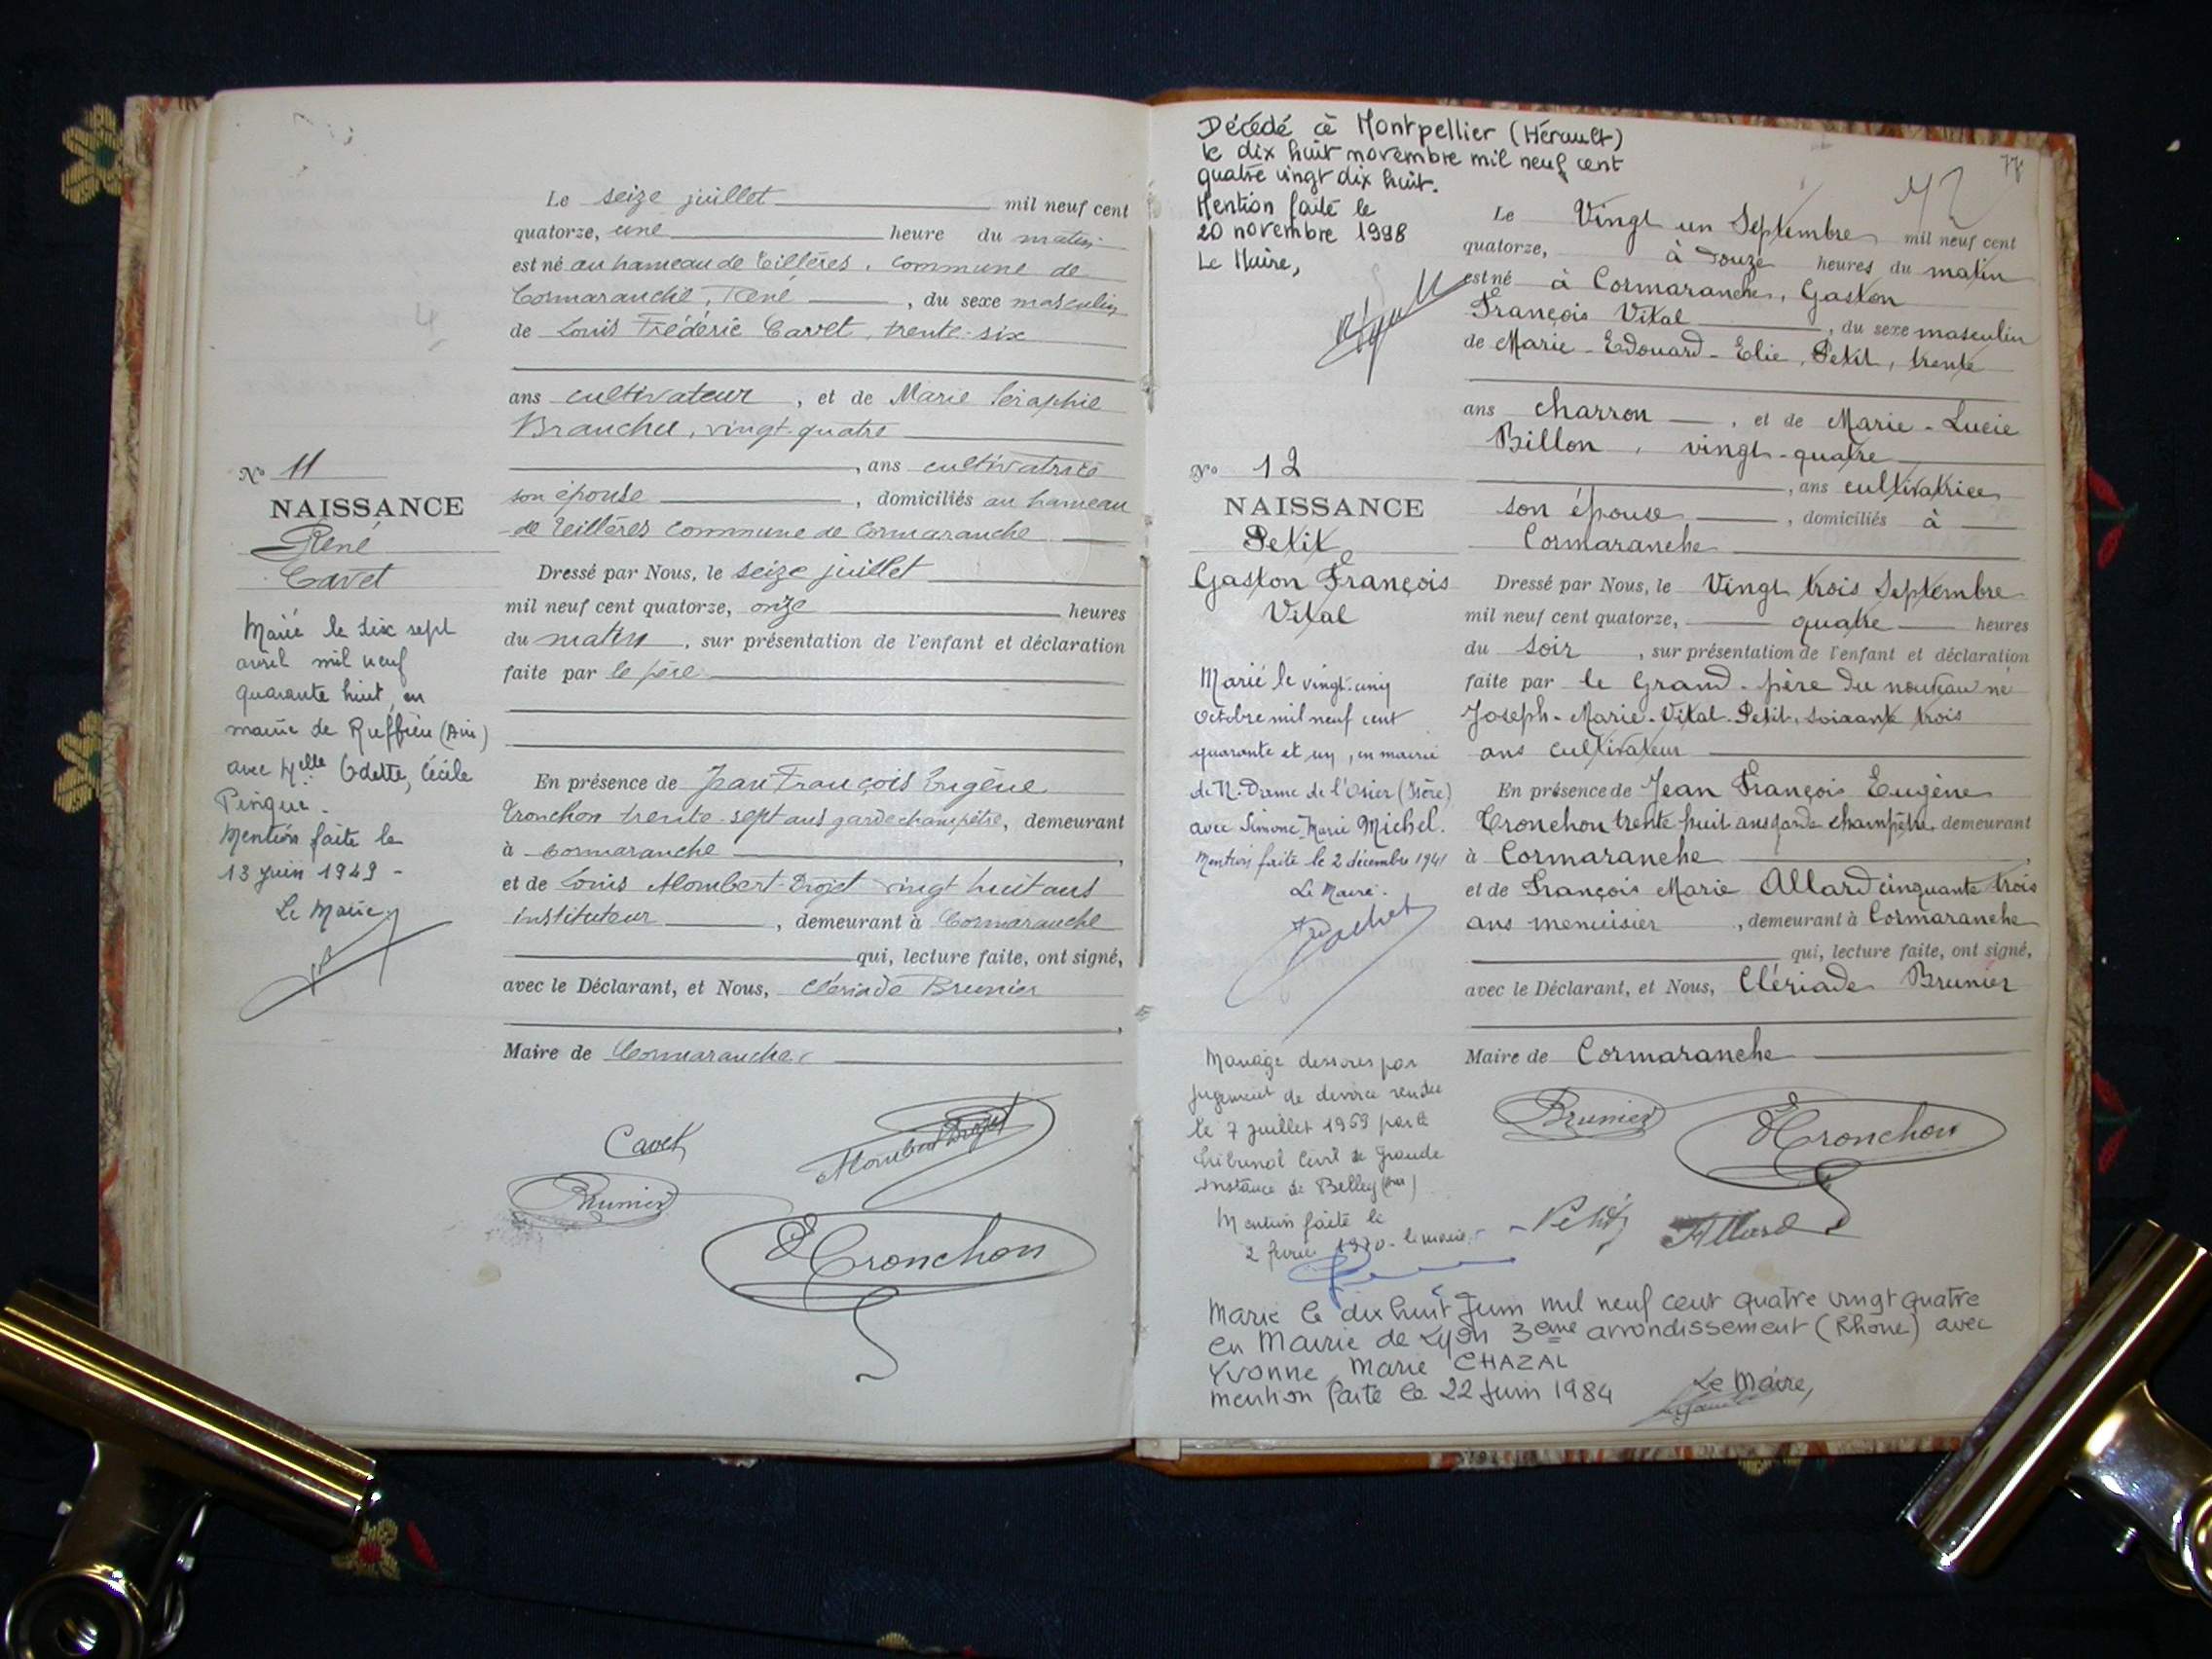 Le seize juillet mil neuf cent
quatorze, une heure du matin
est né au hameau de Villères, commune de
Cormaranche, René, du sexe masculin
de Louis Frédéric Cavet, trente-six
ans cultivateur, et de Marie Séraphie
Branche, vingt-quatre
, ans cultivatrice
son épouse, domiciliés au hameau
de commune de Cormaranche
Dressé par Nous, le seize juillet
mil neuf cent quatorze, onze heures
du matin, sur présentation de l'enfant et déclaration
faite par le père
En présence de Jean François Eugène
Tronchon trente-sept ans garde champêtre, demeurant
à Cormaranche,
et de Louis Mombert-Drojet vingt huit ans
instituteur, demeurant à Cormaranche
qui, lecture faite, ont signé,
avec le Déclarant, et Nous, Clériade Brunier
,
Maire de Cormaranche
Cavet
Mombert Drojet
Brunier
E Tronchon
No 11
NAISSANCE
René
Cavet
Marié le dix sept
avril mil neuf
quarante huit, en
mairie de Ruffieu (Ain)
avec Melle Odette, Cécile
Mention faite le
13 Juin 1949 -
Le Maire
Décédé à Montpellier (Hérault)
le dix huit novembre mil neuf cent
quatre vingt dix huit.
Mention faite le
20 novembre 1998
Le Maire,
Le Vingt un Septembre mil neuf cent
quatorze, à Douze heures du matin
est né à Cormaranche, Gaston
François Vital, du sexe masculin
de Marie-Edouard-Elie, Petit, trente
ans charron, et de Marie-Lucie
Billon, vingt-quatre
, ans cultivatrice
son épouse, domiciliés à
Cormaranche
Dressé par Nous, le Vingt trois Septembre
mil neuf cent quatorze, quatre heures
du soir, sur présentation de l'enfant et déclaration
faite par le Grand-père du nouveau né
Joseph-Marie-Vital-Petit, soixante trois
ans cultivateur
En présence de Jean François Eugène
Tronchon trente huit ans garde champêtre, demeurant
à Cormaranche,
et de François Marie Allard cinquante trois
ans menuisier, demeurant à Cormaranche
qui, lecture faite, ont signé,
avec le Déclarant, et Nous, Clériade Brunier
Maire de Cormaranche
Brunier
E Tronchon
Petit
Allard
No 12
NAISSANCE
Petit
Gaston François
Vital
Marié le vingt-cinq
octobre mil neuf cent
quarante et un, en mairie
de N. Dame de l'Osier (Isère)
avec Simone-Marie Michel.
Mention faite le 2 décembre 1941
Le Maire.
Mariage dissous par
jugement de divorce rendu
le 7 juillet 1969 par le
tribunal Civil de Grande
instance de Belley (Ain)
Mention faite le
2 février 1970 - le maire
Marié le dix huit Juin mil neuf cent quatre vingt quatre
en Mairie de Lyon 3ème arrondissement (Rhône) avec
Yvonne, Marie CHAZAL
mention faite le 22 Juin 1984
Le Maire,